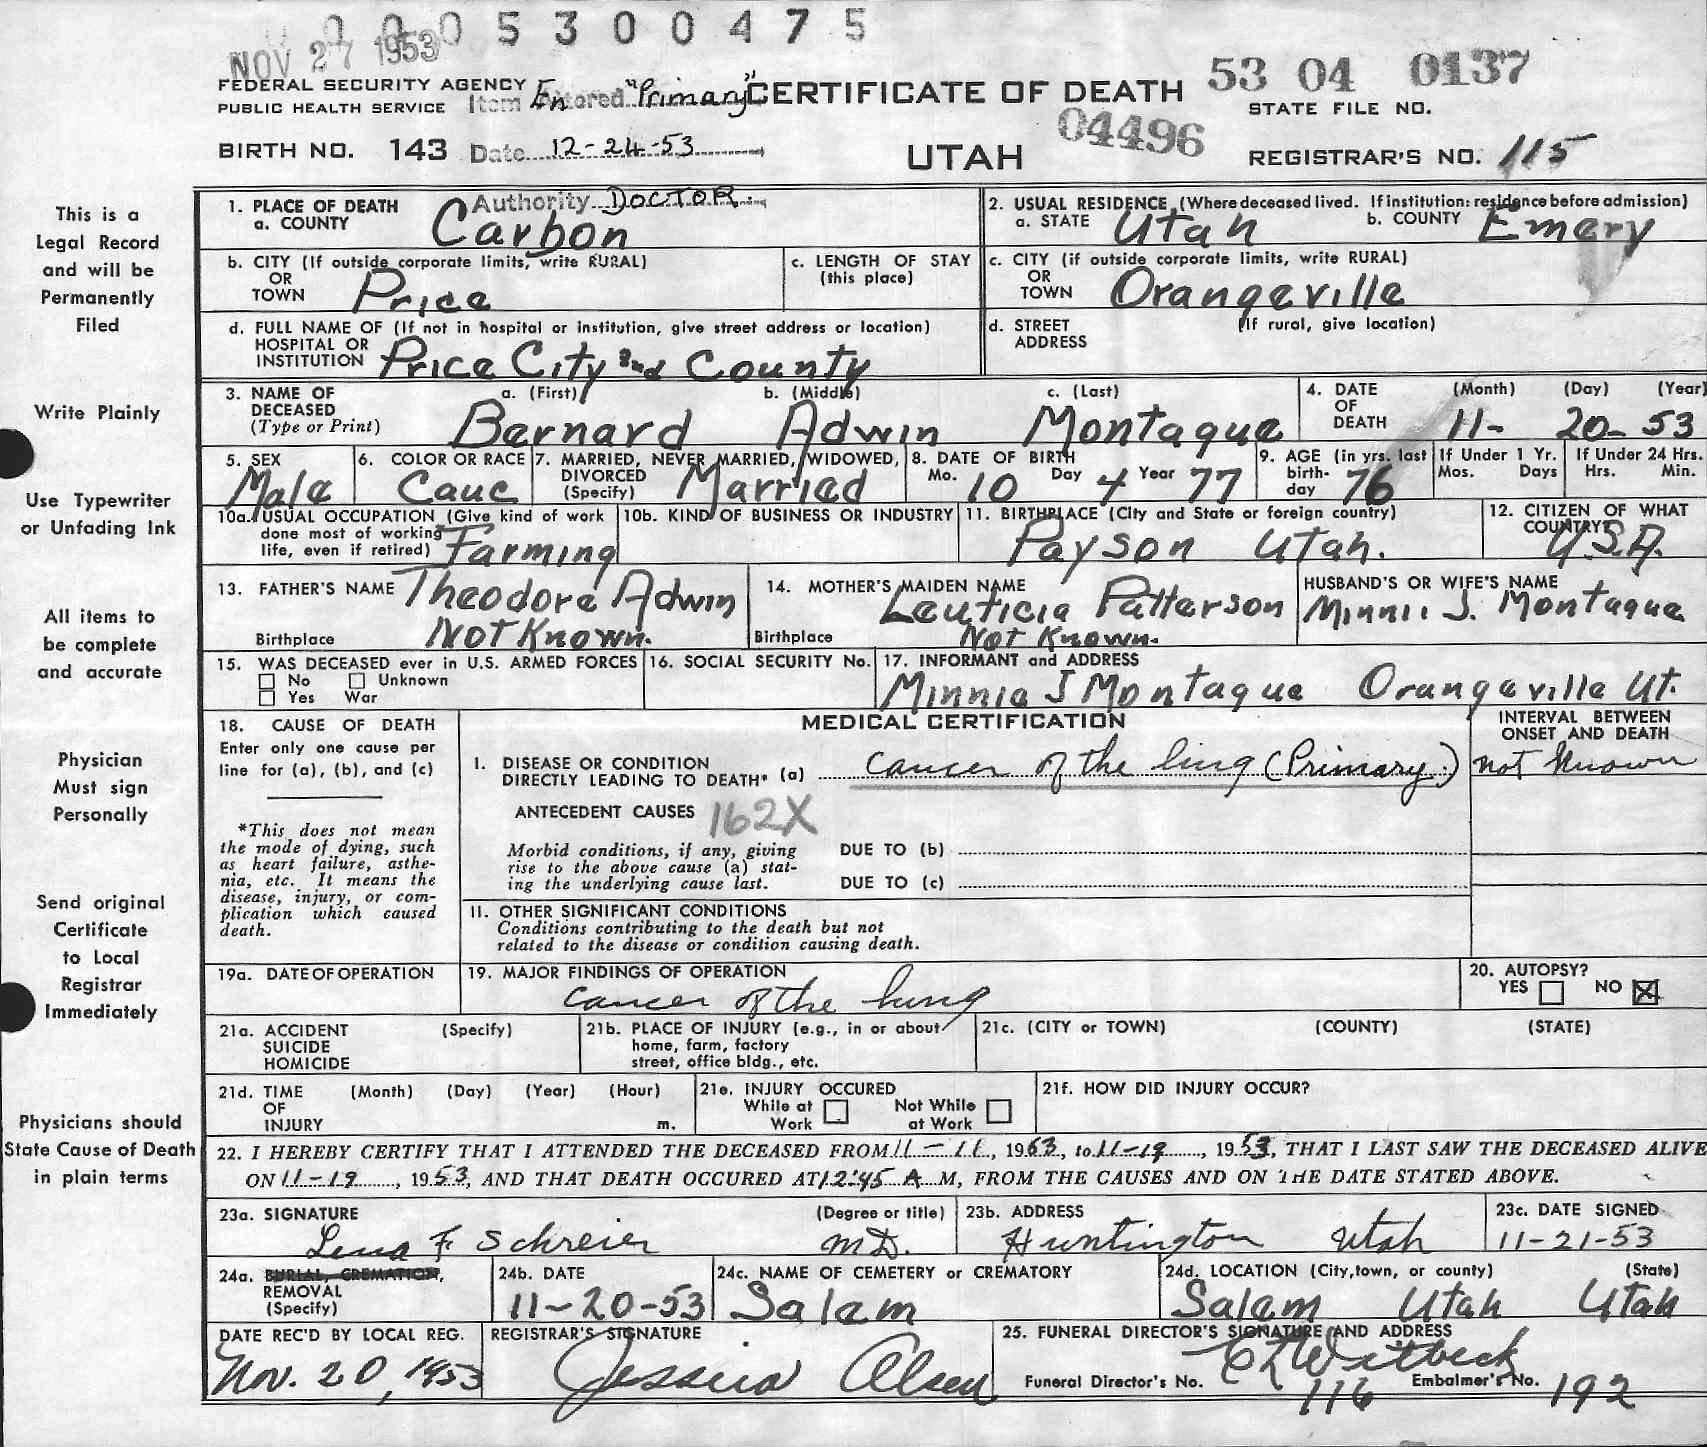 0 0 0 5 3 0 0 4 7 5
NOV 27 1953
FEDERAL SECURITY AGENCY
PUBLIC HEALTH SERVICE
Item Entered "Primary"
CERTIFICATE OF DEATH
53 04 0137
STATE FILE NO.
BIRTH NO. 143 Date 12-24-53
UTAH
04496
REGISTRAR'S NO. 115
Authority DOCTOR
This is a
Legal Record
and will be
Permanently
Filed
Write Plainly
Use Typewriter
or Unfading Ink
All items to
be complete
and accurate
Physician
Must sign
Personally
Send original
Certificate
to Local
Registrar
Immediately
Physicians should
State Cause of Death
in plain terms
1. PLACE OF DEATH
a. COUNTY Carbon
2. USUAL RESIDENCE (Where deceased lived. If institution: residence before admission)
a. STATE Utah b. COUNTY Emery
b. CITY (If outside corporate limits, write RURAL)
OR
TOWN Price
c. LENGTH OF STAY
(this place)
c. CITY (if outside corporate limits, write RURAL)
OR
TOWN Orangeville
d. FULL NAME OF (If not in hospital or institution, give street address or location)
HOSPITAL OR
INSTITUTION Price City and County
d. STREET (If rural, give location)
ADDRESS
3. NAME OF DECEASED
(Type or Print)
a. (First) b. (Middle) c. (Last)
Bernard Adwin Montague
4. DATE OF DEATH (Month) (Day) (Year)
11- 20- 53
5. SEX
Male
6. COLOR OR RACE
Cauc
7. MARRIED, NEVER MARRIED, WIDOWED,
DIVORCED
(Specify) Married
8. DATE OF BIRTH
Mo. 10 Day 4 Year 77
9. AGE (in yrs. last
birth-
day 76
If Under 1 Yr.
Mos. Days
If Under 24 Hrs.
Hrs. Min.
10a. USUAL OCCUPATION (Give kind of work
done most of working
life, even if retired) Farming
10b. KIND OF BUSINESS OR INDUSTRY
11. BIRTHPLACE (City and State or foreign country)
Payson Utah.
12. CITIZEN OF WHAT
COUNTRY?
U.S.A.
13. FATHER'S NAME Theodore Adwin
Birthplace Not Known.
14. MOTHER'S MAIDEN NAME
Leuticia Patterson
Birthplace Not Known.
HUSBAND'S OR WIFE'S NAME
Minnie J. Montague
15. WAS DECEASED ever in U.S. ARMED FORCES
No Unknown
Yes War
16. SOCIAL SECURITY No.
17. INFORMANT and ADDRESS
Minnie J Montague Orangeville Ut.
18. CAUSE OF DEATH
Enter only one cause per
line for (a), (b), and (c)
*This does not mean
the mode of dying, such
as heart failure, asthe-
nia, etc. It means the
disease, injury, or com-
plication which caused
death.
MEDICAL CERTIFICATION
INTERVAL BETWEEN
ONSET AND DEATH
I. DISEASE OR CONDITION
DIRECTLY LEADING TO DEATH* (a) cancer of the lung (Primary.) not known
ANTECEDENT CAUSES 162X
Morbid conditions, if any, giving
rise to the above cause (a) stat-
ing the underlying cause last.
DUE TO (b)
DUE TO (c)
II. OTHER SIGNIFICANT CONDITIONS
Conditions contributing to the death but not
related to the disease or condition causing death.
19a. DATE OF OPERATION
19. MAJOR FINDINGS OF OPERATION
cancer of the lung
20. AUTOPSY?
YES NO X
21a. ACCIDENT (Specify)
SUICIDE
HOMICIDE
21b. PLACE OF INJURY (e.g., in or about
home, farm, factory
street, office bldg., etc.
21c. (CITY or TOWN) (COUNTY) (STATE)
21d. TIME (Month) (Day) (Year) (Hour)
OF
INJURY m.
21e. INJURY OCCURED
While at Work Not While at Work
21f. HOW DID INJURY OCCUR?
22. I HEREBY CERTIFY THAT I ATTENDED THE DECEASED FROM 11-11, 1953, to 11-19, 1953, THAT I LAST SAW THE DECEASED ALIVE
ON 11-19, 1953, AND THAT DEATH OCCURED AT 12:45 A M, FROM THE CAUSES AND ON THE DATE STATED ABOVE.
23a. SIGNATURE (Degree or title)
Lena F Schreier MD.
23b. ADDRESS
Huntington Utah
23c. DATE SIGNED
11-21-53
24a. BURIAL, CREMATION,
REMOVAL
(Specify)
24b. DATE
11-20-53
24c. NAME OF CEMETERY or CREMATORY
Salem
24d. LOCATION (City, town, or county) (State)
Salem Utah Utah
DATE REC'D BY LOCAL REG.
Nov. 20, 1953
REGISTRAR'S SIGNATURE
Jessica Olsen
25. FUNERAL DIRECTOR'S SIGNATURE AND ADDRESS
Funeral Director's No. 116 Embalmer's No. 192